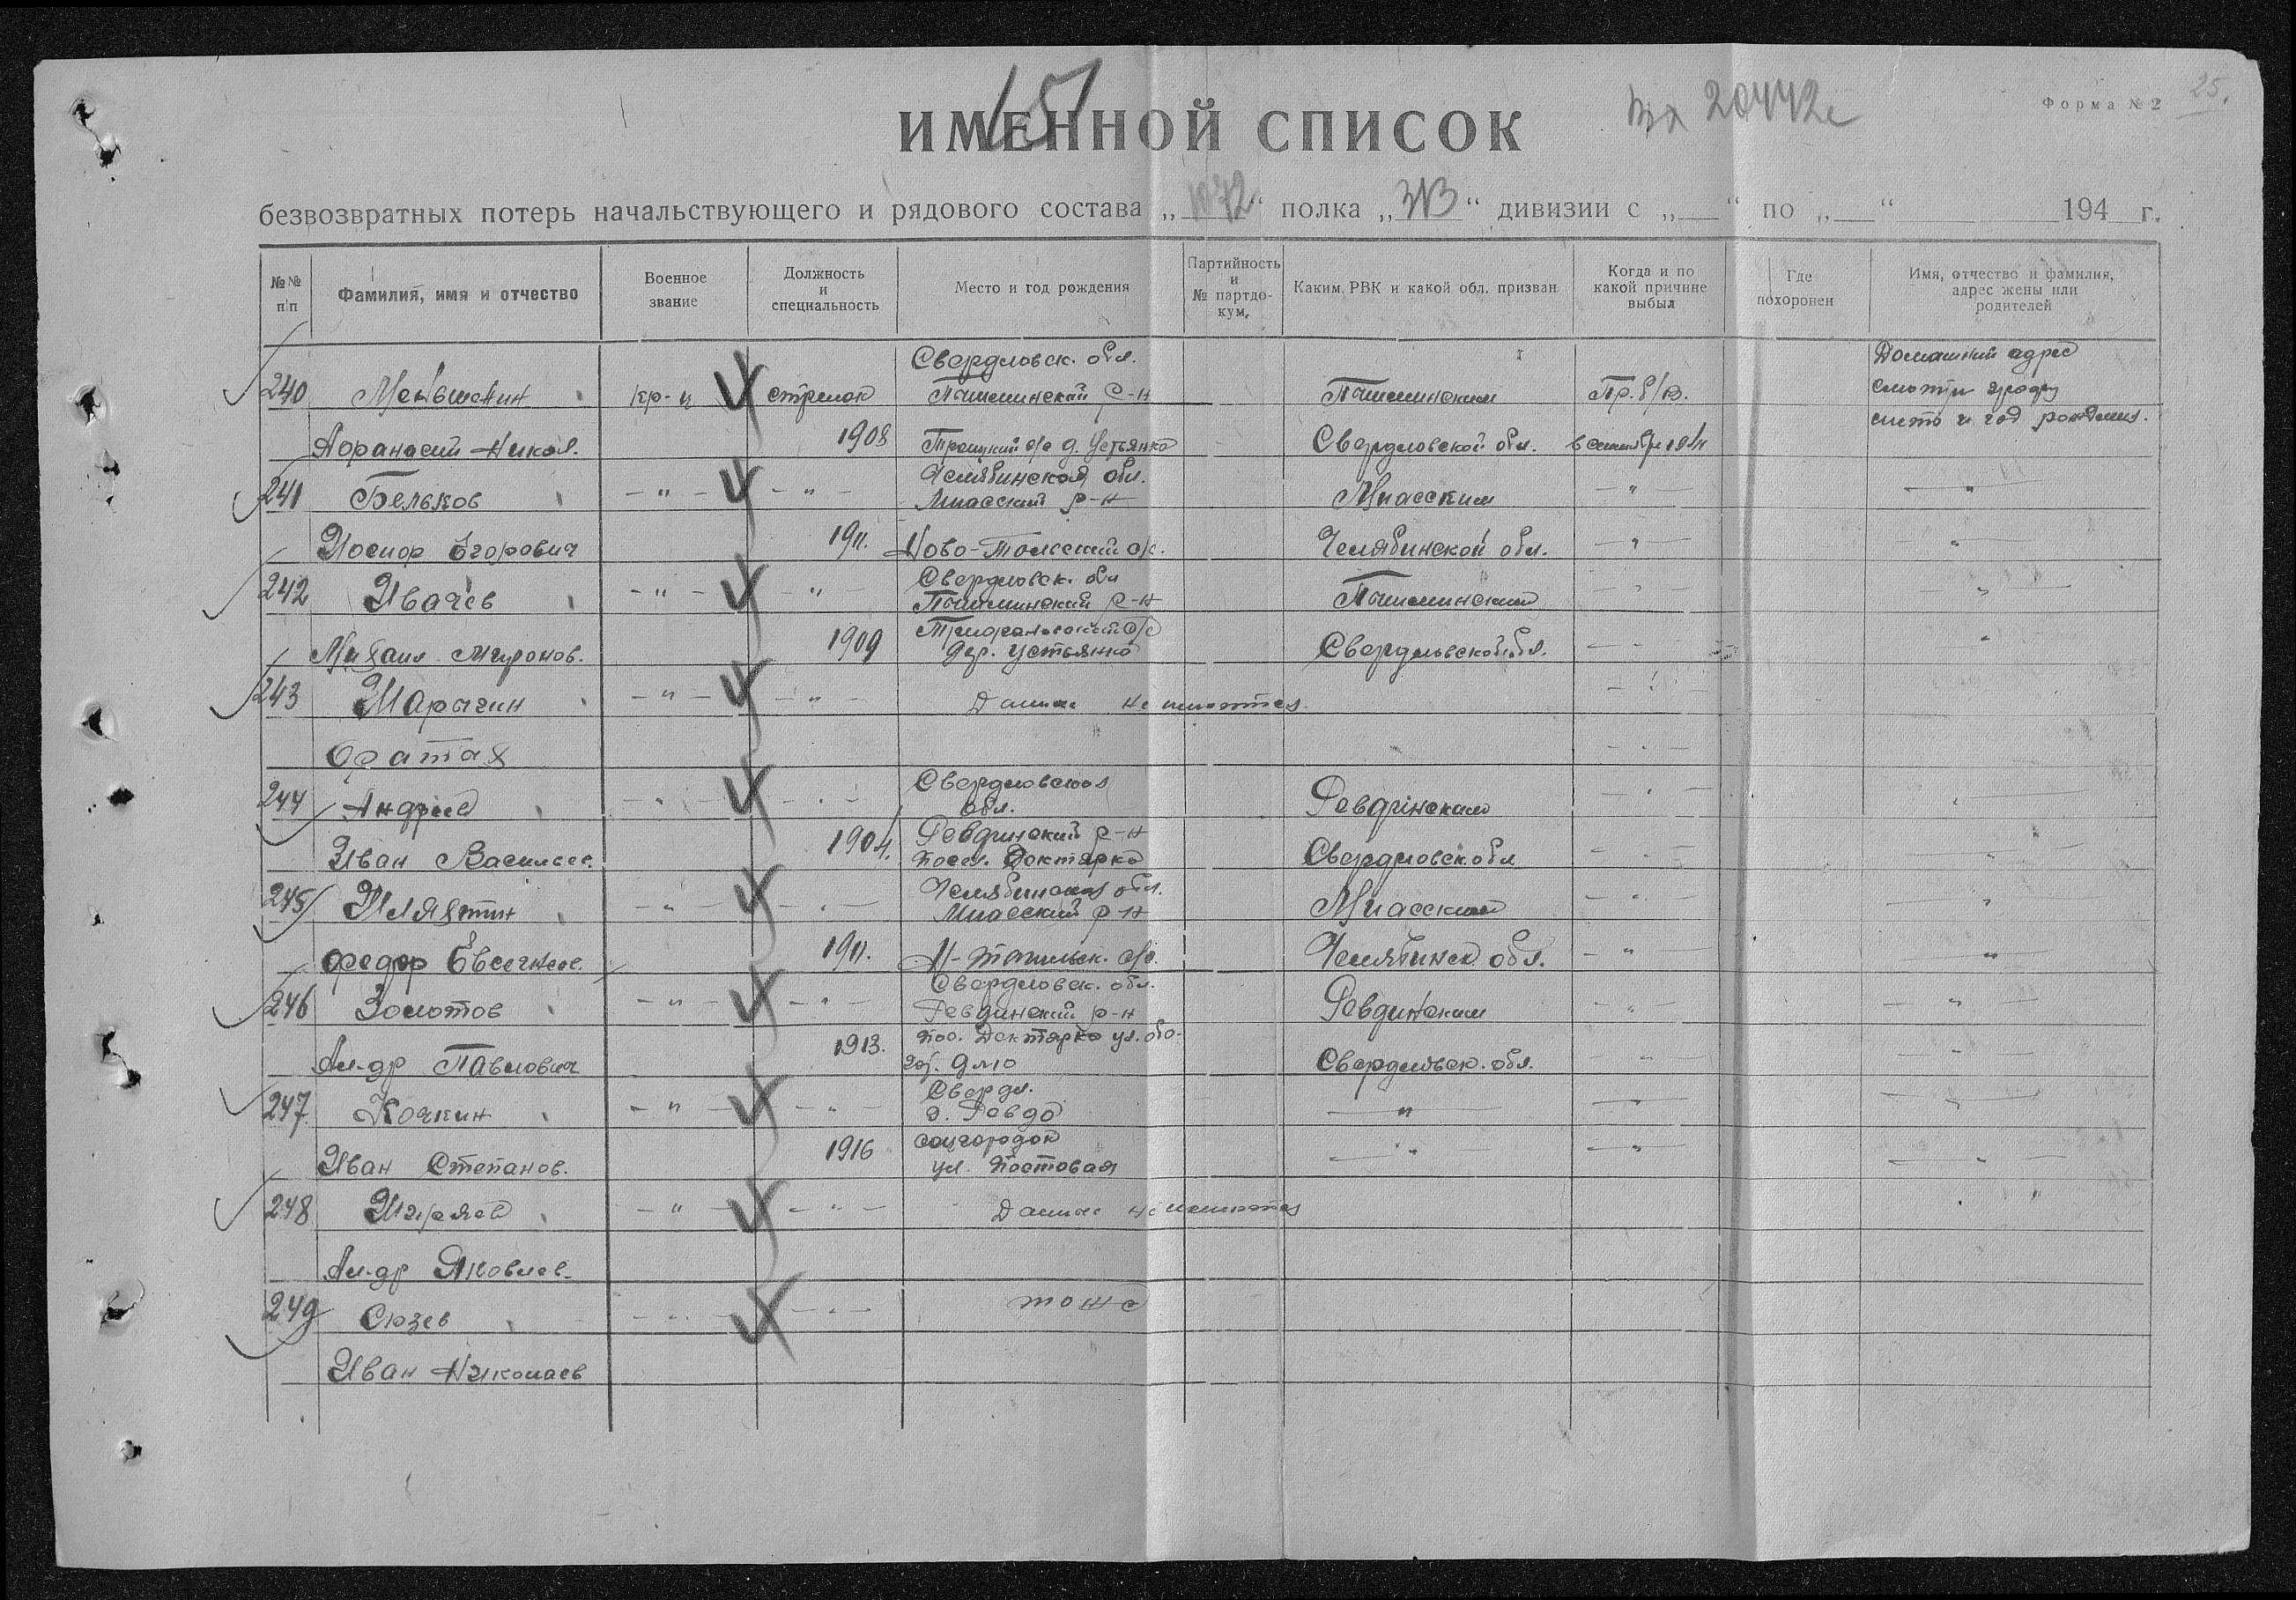 25.
151
Вх 20442с
Форма № 2
ИМЕННОЙ СПИСОК
безвозвратных потерь начальствующего и рядового состава „1072“ полка „313“ дивизии с „—“ по „—“ 194 г.
№№ п/п
Фамилия, имя и отчество
Военное звание
Должность и специальность
Место и год рождения
Партийность и № партдокум.
Каким РВК и какой обл. призван
Когда и по какой причине выбыл
Где похоронен
Имя, отчество и фамилия, адрес жены или родителей
Свердловск. обл. Домашний адрес
240 Меньшенин кр-ц стрелок Пышминский р-н Пышминским Пр. б/в. смотри графу
Афанасий Никол. 1908 Троицкий с/с д. Устьянка Свердловской обл. в сентябре 1941 место и год рождения.
Челябинская обл.
241 Бельков —"— —"— Миасский р-н Миасским —"— —"—
Иосиф Егорович 1911. Ново-Тольский с/с. Челябинской обл. —"— —"—
Свердловск. обл
242 Ивачев —"— —"— Пышминский р-н Пышминским — —"—
Михаил Миронов. 1909 дер. Устьянка Свердловской обл. —"— "
243 Шарагин —"— —"— Данные не имеются —"—
Фатах —"—
Свердловская
244 Андреев —"— —"— обл. Ревдинским —"— —"—
Ревдинский р-н
Иван Васильев. 1904. посел. Доктярка Свердловск. обл —"— —"—
Челябинская обл.
245 Шляхтин —"— —"— Миасский р-н Миасским —"— —"—
Федор Евсегнеев. 1911. с/с. Челябинск. обл. —"— "
Свердловск. обл.
246 Золотов —"— —"— Ревдинский р-н Ревдинским —"— —"—
пос. Доктярка ул.
Ал-др Павлович 1913. Свердловск. обл. —"— —"—
Свердл.
247. Кочкин —"— —"— г. Ревда —"— —"— —"—
соцгородок
Иван Степанов. 1916 ул. Постовая —"— —"— —"—
248 —"— —"— Данные не имеются "
Ал-др Яковлев.
249 Сюзев —"— —"— тоже
Иван Николаев